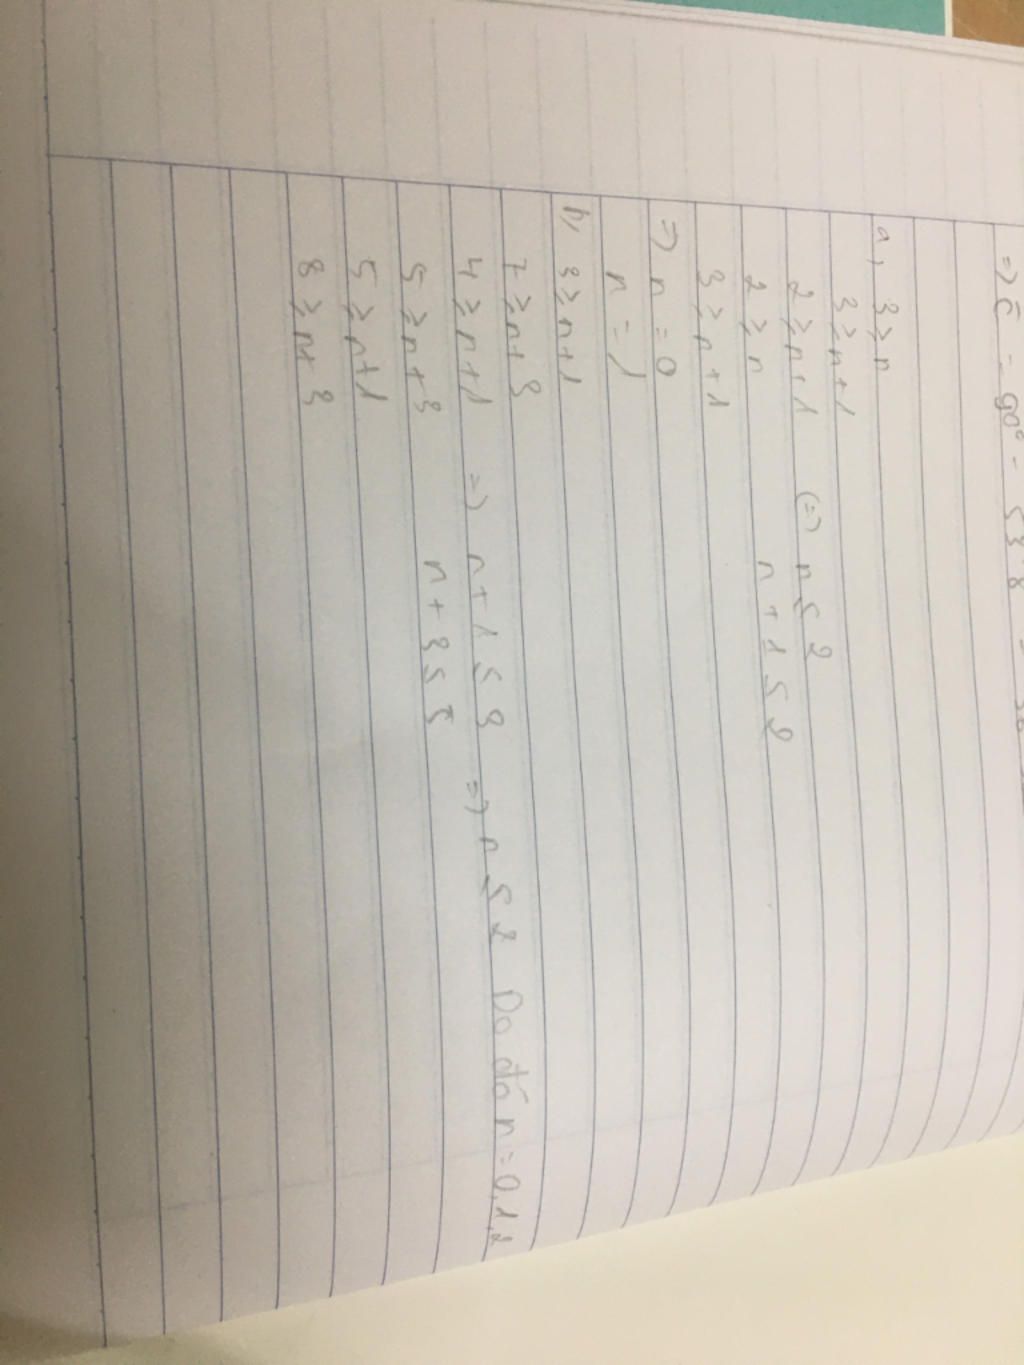 => Ĉ = 90° -
a, 3 ≥ n
3 ≥ n+1
2 ≥ n+1 (=) n ≤ 2
2 ≥ n n + 1 ≤ 2
3 ≥ n+1
=> n = 0
n = 1
b, 3 ≥ n+1
7 ≥ n+3
4 ≥ n+1 => n+1 ≤ 3 => n ≤ 2 Do đó n = 0,1,2
5 ≥ n+3 n + 3 ≤ 5
5 ≥ n+1
8 ≥ n+3